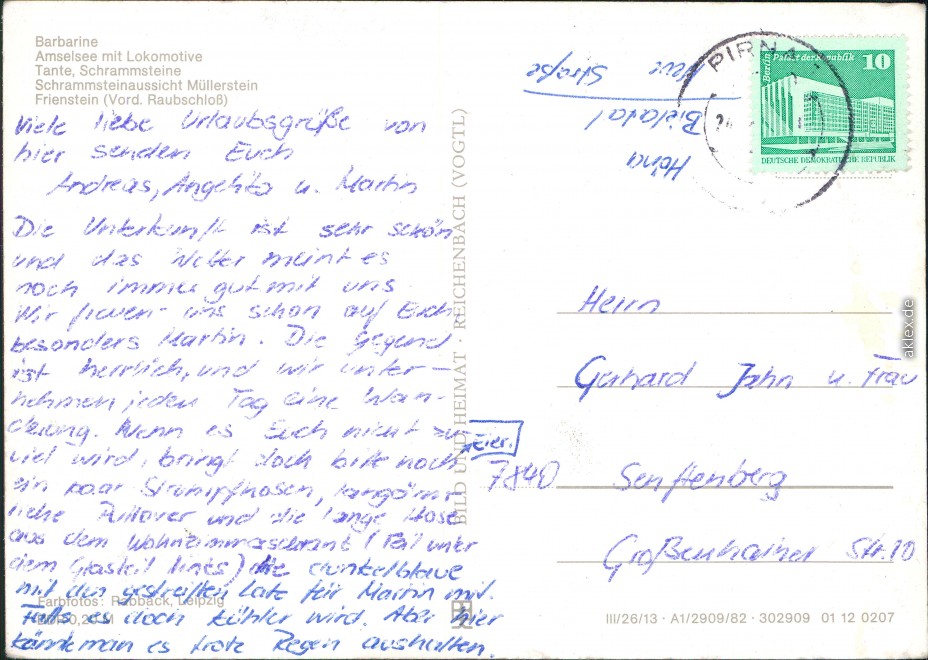 Barbarine
Amselsee mit Lokomotive
Tante, Schrammsteine
Schrammsteinaussicht Müllerstein
Frienstein (Vord. Raubschloß)
Viele liebe Urlaubsgrüße von
hier senden Euch
Andreas, Angelita u. Martin
Die Unterkunft ist sehr schön
und das Wetter meint es
noch immer gut mit uns.
Wir freuen uns schon auf Euch
besonders Martin. Die Gegend
ist herrlich, und wir unter-
nehmen jeden Tag eine Wan-
derung. Wenn es Euch nicht zu
viel wird, bringt doch bitte noch
ein paar Strumpfhosen, langärm-
liche Pullover und die lange Hose
aus dem Wohnzimmerschrank (Teil unter
dem Glasteil links) die dunkelblaue
mit den gestreiften Latz für Martin mit.
Falls es doch kühler wird. Aber hier
könnte man es trotz Regen aushalten.
Eier.
Farbfotos: Rabback, Leipzig
BILD UND HEIMAT · REICHENBACH (VOGTL)
Bielatal
Neue Straße
PIRNA
24
Berlin Palast der Republik 10
DEUTSCHE DEMOKRATISCHE REPUBLIK
Herrn
Gerhard Jahn u. Frau
7840 Senftenberg
Großenhainer Str. 10
III/26/13 · A1/2909/82 · 302909 01 12 0207
aklex.de